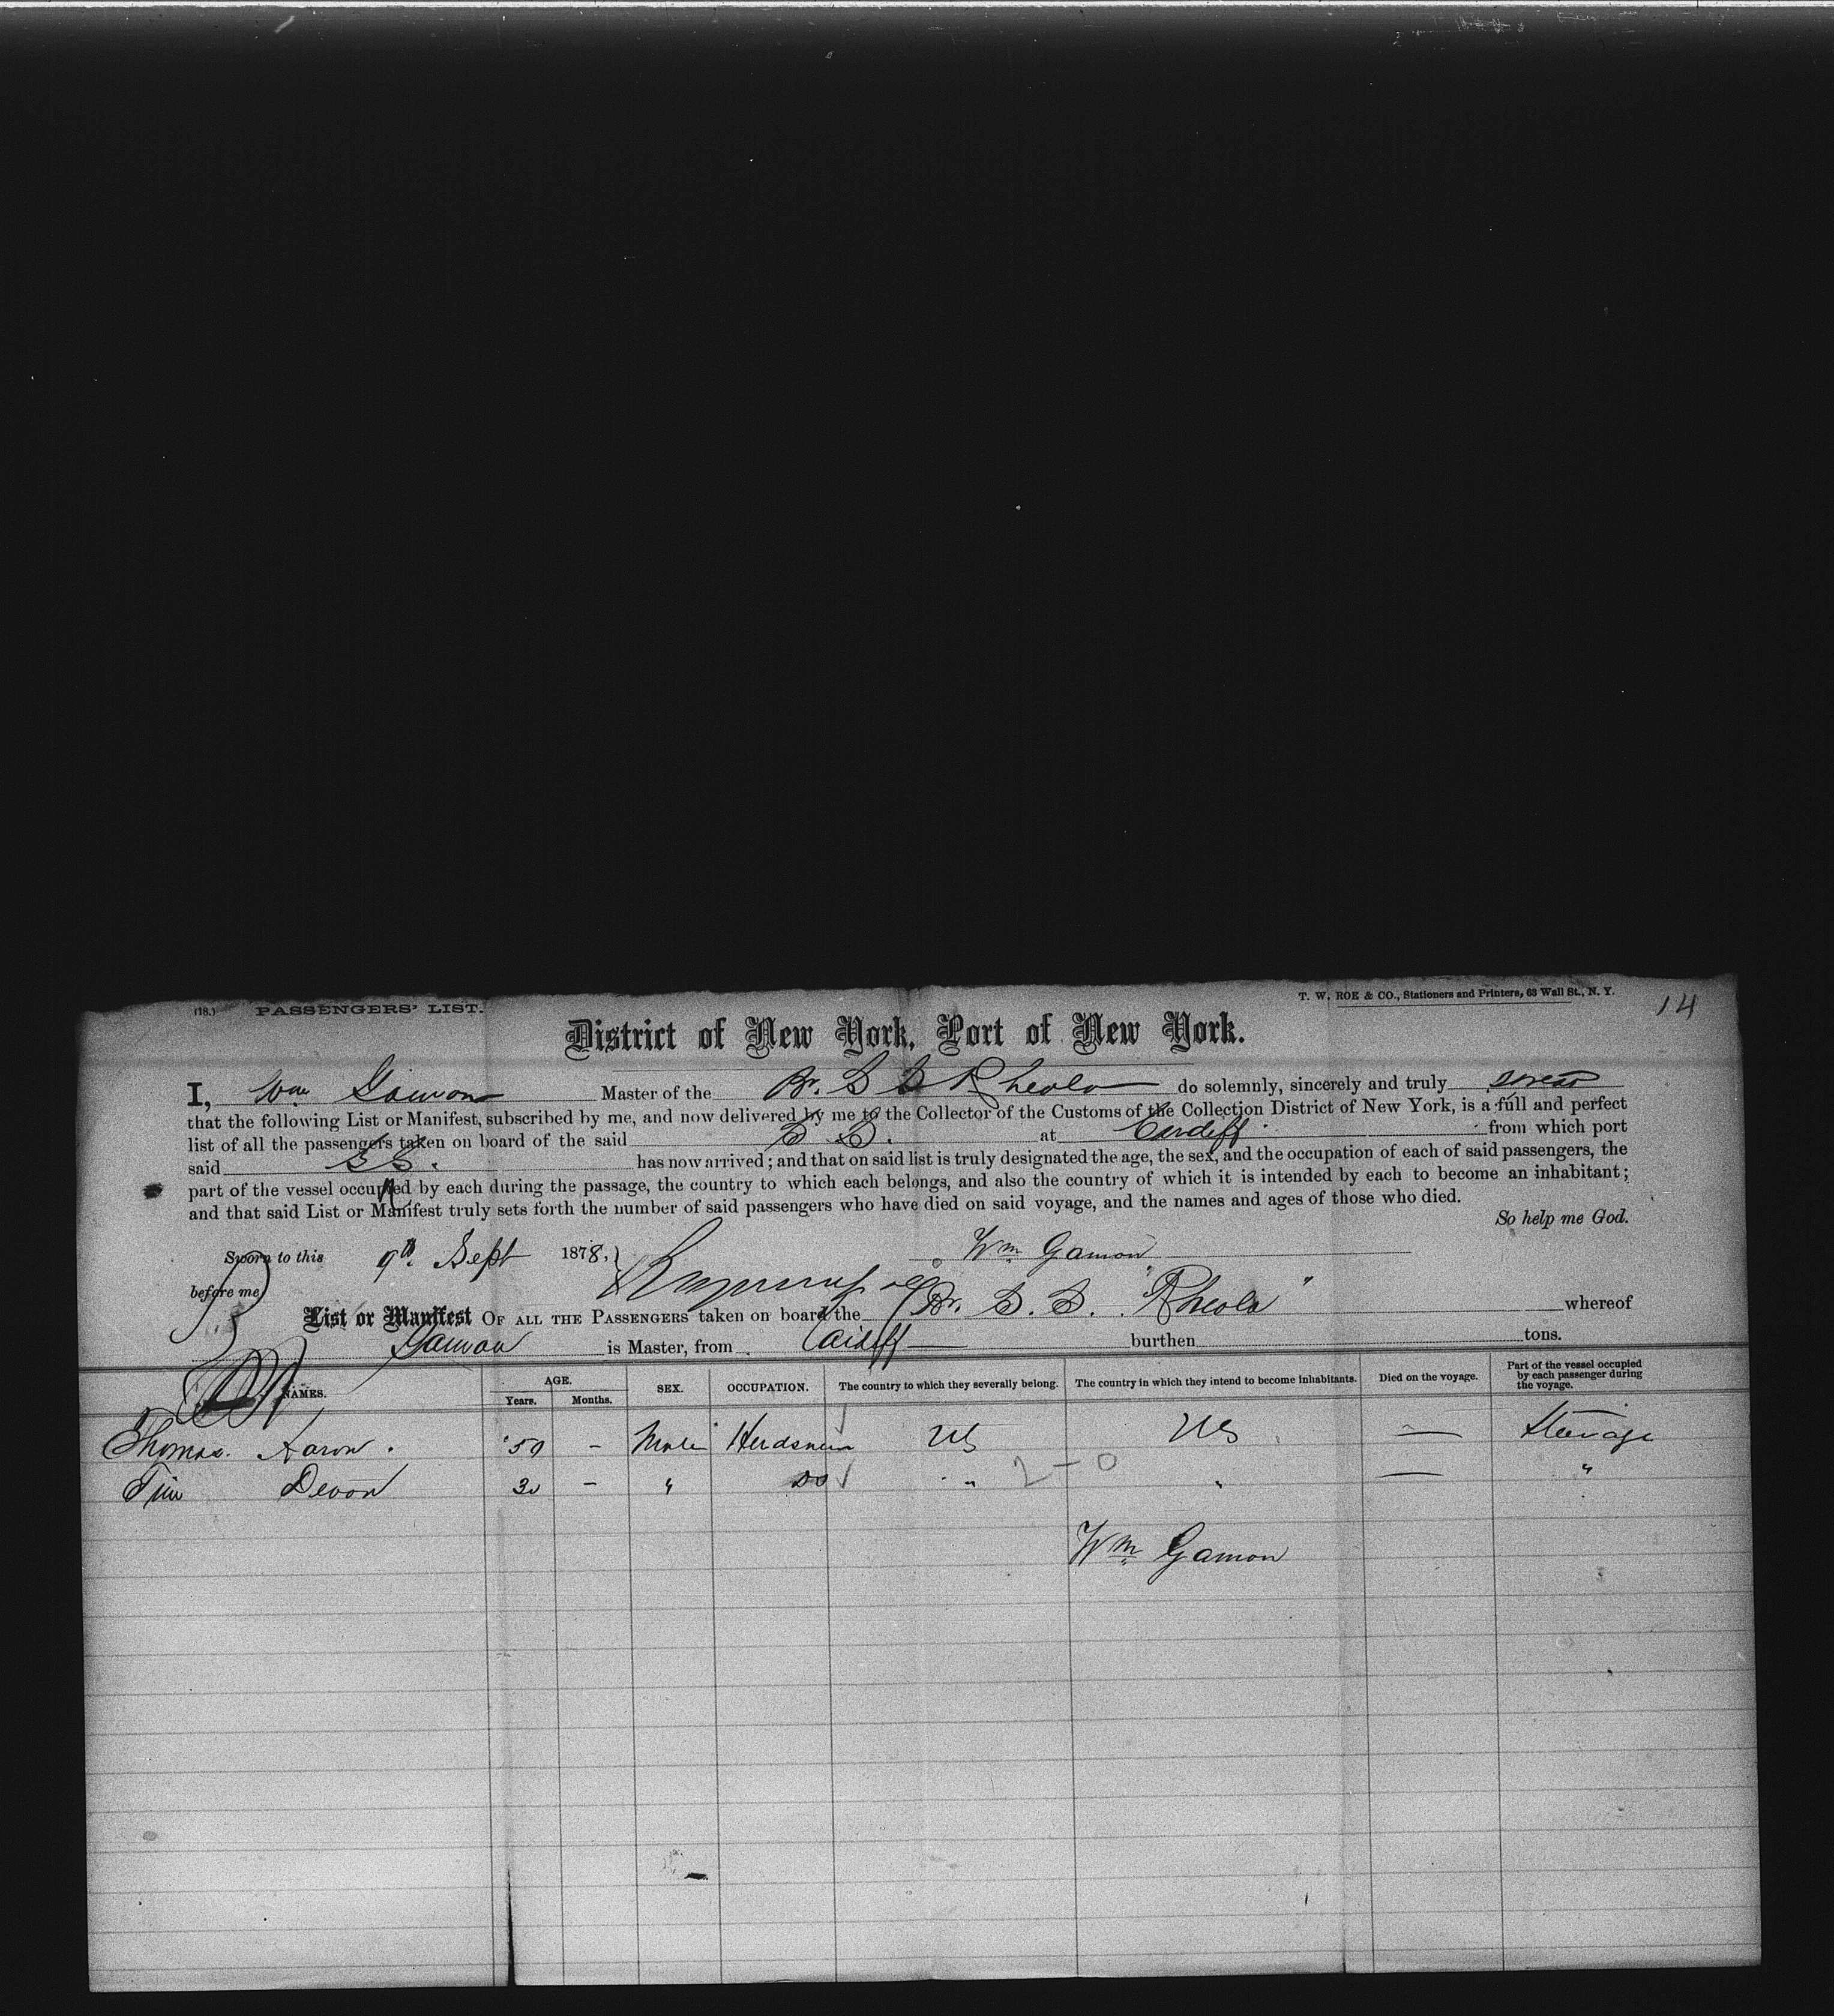 (18.) PASSENGERS' LIST. T. W. ROE & CO., Stationers and Printers, 63 Wall St., N. Y. 14
District of New York, Port of New York.
I, Wm Gamon Master of the Br. S S Rheola do solemnly, sincerely and truly swear
that the following List or Manifest, subscribed by me, and now delivered by me to the Collector of the Customs of the Collection District of New York, is a full and perfect
list of all the passengers taken on board of the said S S. at Cardiff from which port
said S S. has now arrived; and that on said list is truly designated the age, the sex, and the occupation of each of said passengers, the
part of the vessel occupied by each during the passage, the country to which each belongs, and also the country of which it is intended by each to become an inhabitant;
and that said List or Manifest truly sets forth the number of said passengers who have died on said voyage, and the names and ages of those who died.
So help me God.
Sworn to this 9th. Sept 1878, Wm Gamon
before me
List or Manifest OF ALL THE PASSENGERS taken on board the Br. S. S. "Rheola" whereof
Gamon is Master, from Cardiff burthen tons.
NAMES. AGE. Years. Months. SEX. OCCUPATION. The country to which they severally belong. The country in which they intend to become inhabitants. Died on the voyage. Part of the vessel occupied by each passenger during the voyage.
Thomas. Aaron. 50 - Male Herdsman US US — Steerage
Tim Devon 30 - " do " 2-0 " — "
Wm Gamon